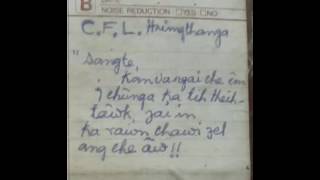 B
NOISE REDUCTION □YES □NO
C.F.L. Hmingthanga
"Sangte,
Kan vangai che in
chunga ka tih theih-
tâwk, zai in
ka rawn chawi zel
ang che aw!!